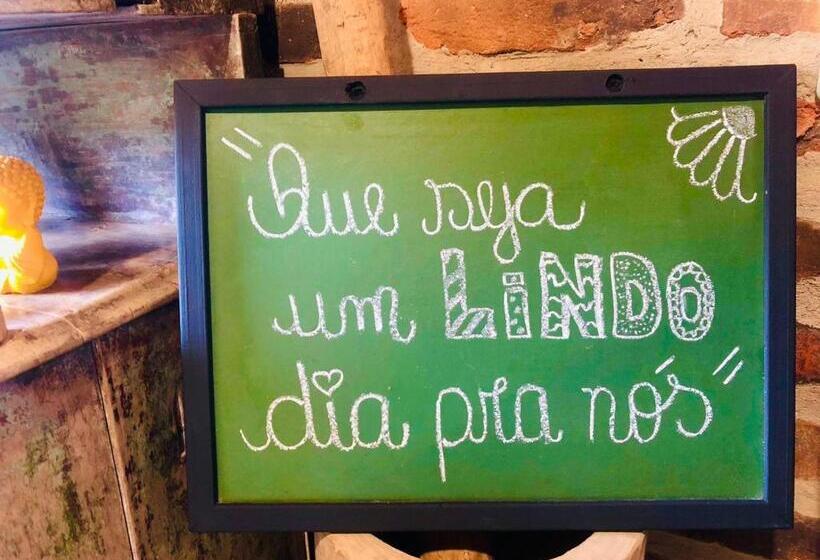 "Que seja
um LiNDO
dia pra nós"